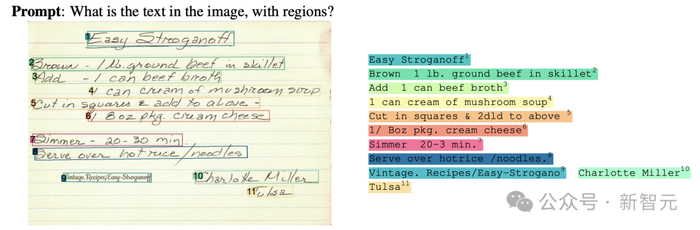 Prompt: What is the text in the image, with regions?
1 Easy Stroganoff
2 Brown - 1 lb. ground beef in skillet
3 Add - 1 can beef broth
4 1 can cream of mushroom soup
5 Cut in squares & add to above -
6 1 8oz pkg. cream cheese
7 Simmer - 20-30 min
8 Serve over hot rice/noodles
9 Vintage.Recipes/Easy-Stroganoff
10 Charlotte Miller
11 Tulsa
Easy Stroganoff1
Brown 1 lb. ground beef in skillet2
Add 1 can beef broth3
1 can cream of mushroom soup4
Cut in squares & 2dld to above 5
1/ Boz pkg. cream cheese6
Simmer 20-3 min.7
Serve over hotrice /noodles.8
Vintage. Recipes/Easy-Strogano9 Charlotte Miller10
Tulsa11
公众号 · 新智元